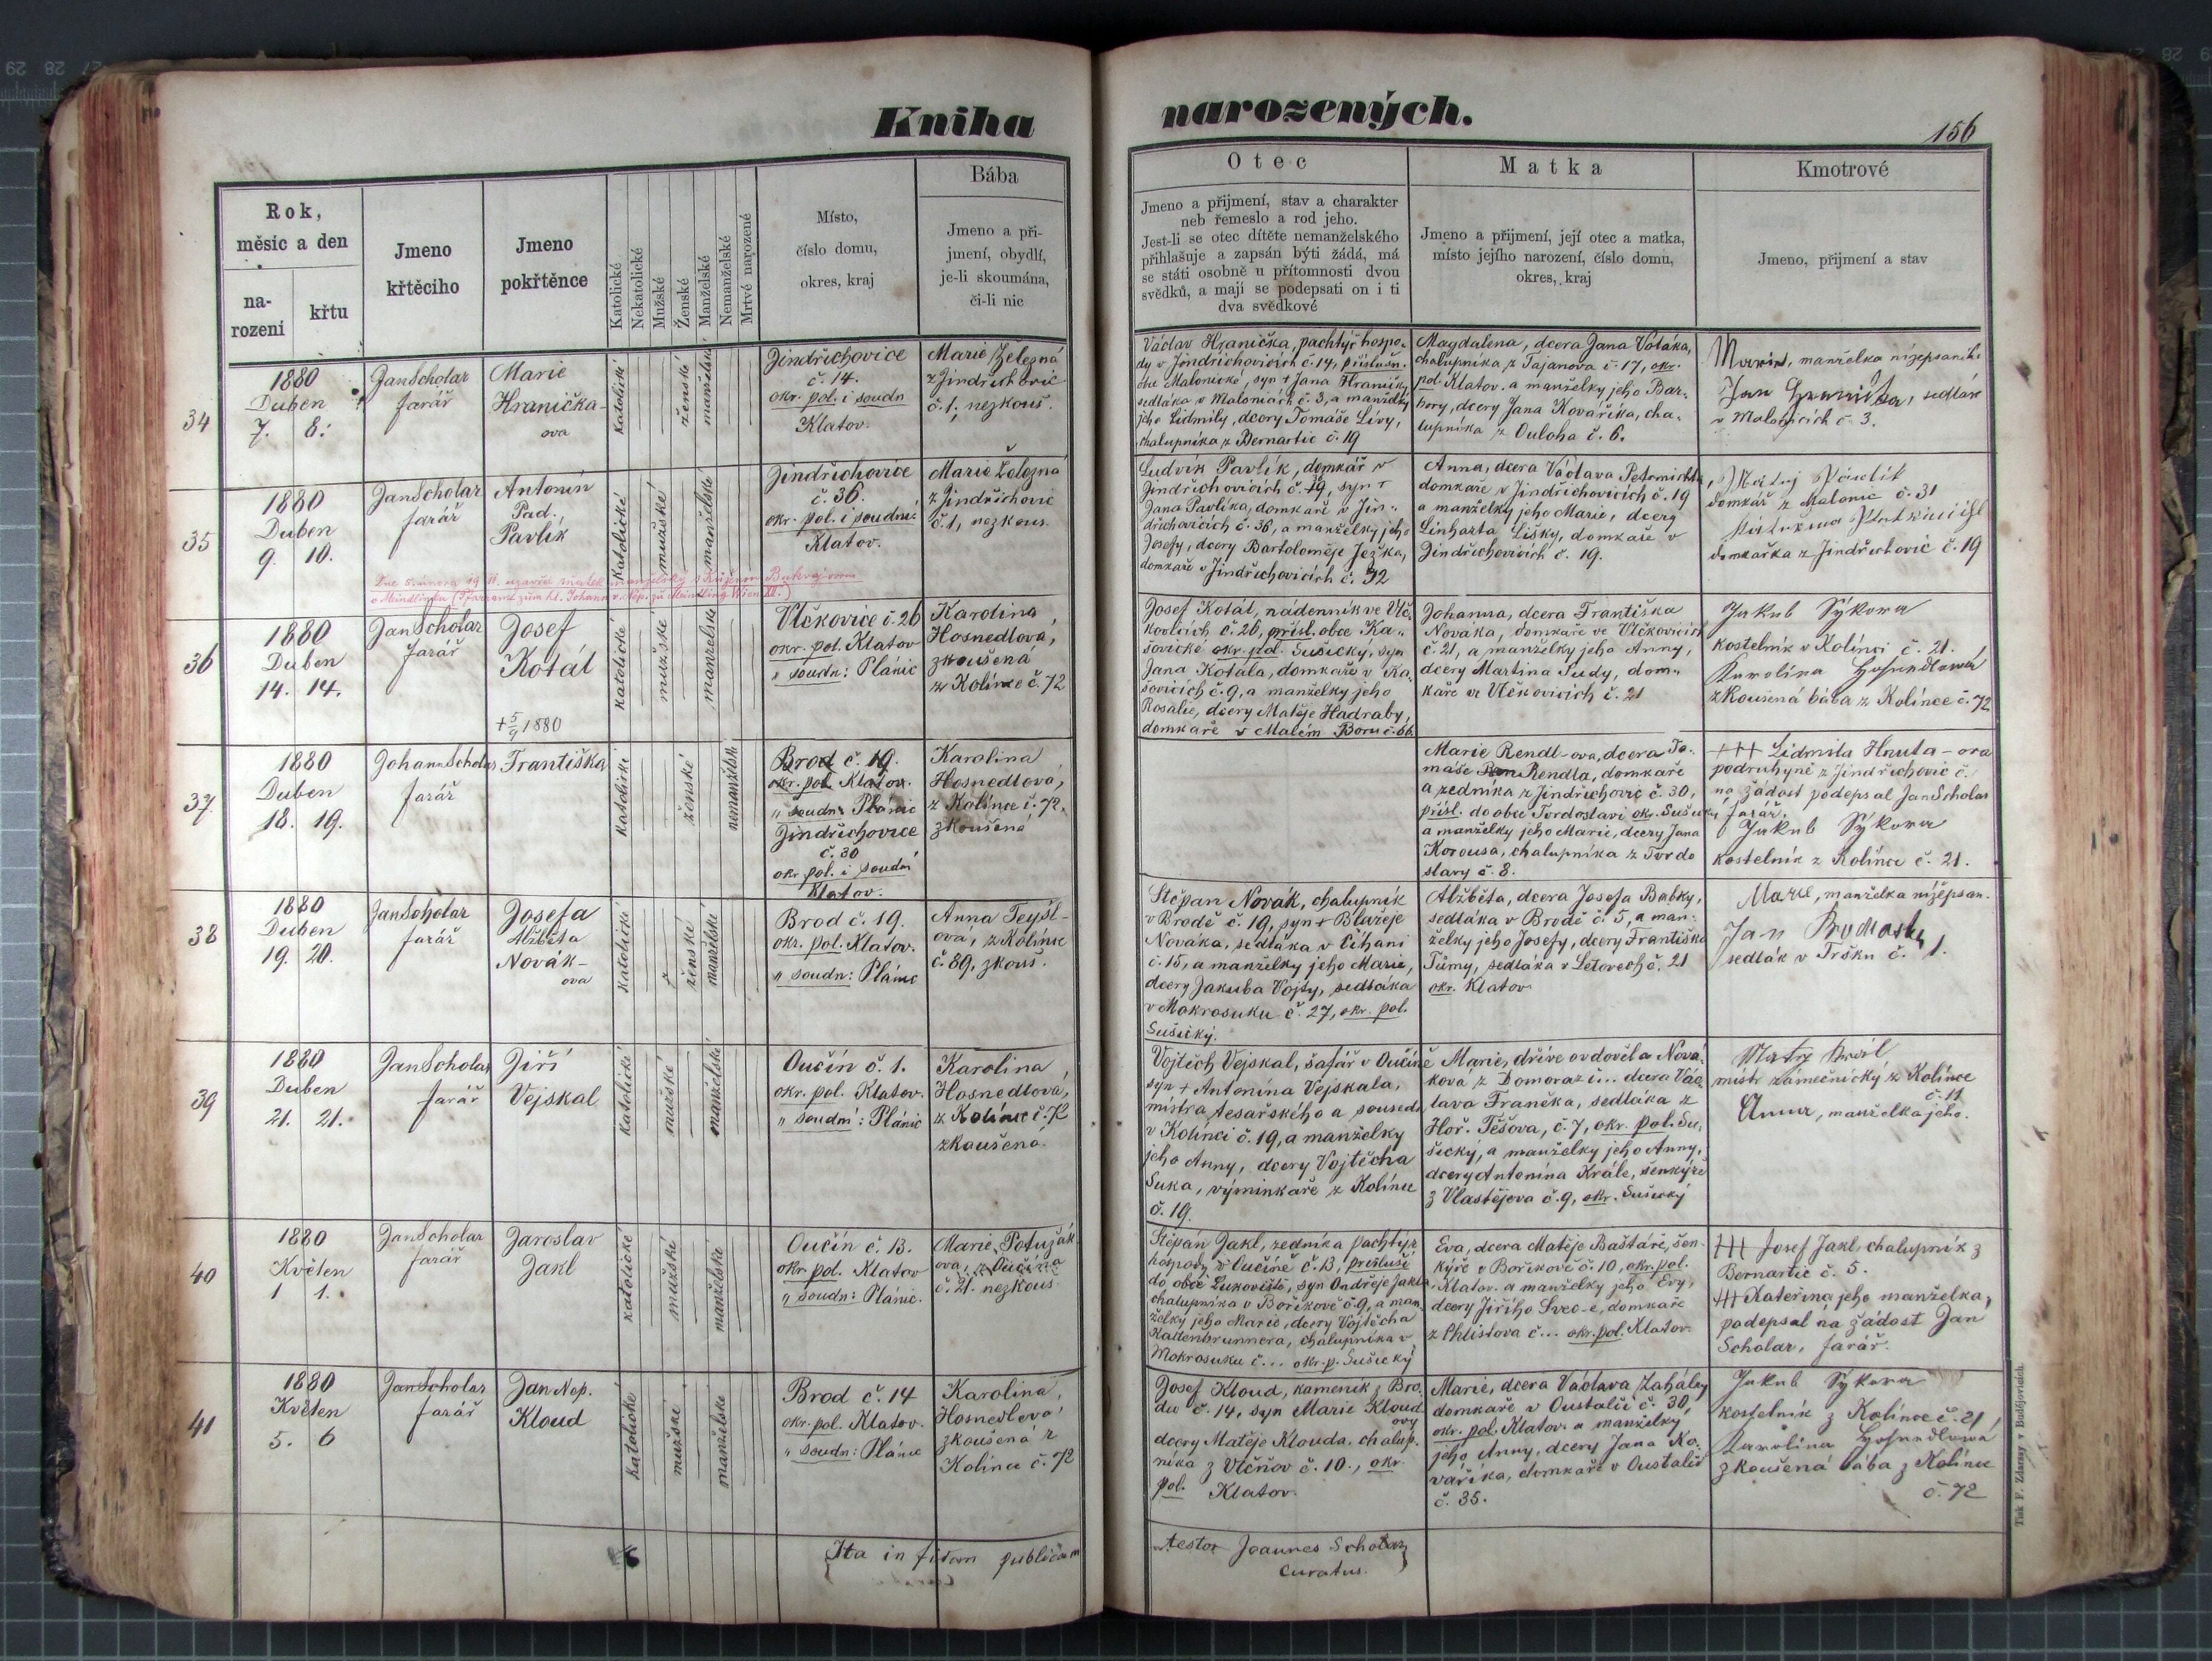 Kniha
narozených.
156
Rok,
měsíc a den
na-
rození
křtu
Jmeno
křtěcího
Jmeno
pokřtěnce
Katolické
Nekatolické
Mužské
Ženské
Manželské
Nemanželské
Mrtvě narozené
Místo,
číslo domu,
okres, kraj
Bába
Jmeno a při-
jmení, obydlí,
je-li skoumána,
či-li nic
Otec
Jmeno a přijmení, stav a charakter
neb řemeslo a rod jeho.
Jest-li se otec dítěte nemanželského
přihlašuje a zapsán býti žádá, má
se státi osobně u přítomnosti dvou
svědků, a mají se podepsati on i ti
dva svědkové
Matka
Jmeno a přijmení, její otec a matka,
místo jejího narození, číslo domu,
okres, kraj
Kmotrové
Jmeno, přijmení a stav
34
1880
Duben
7. 8.
Jan Scholar
farář
Marie
Hranička-
ova
katolické
ženské
manželské
Jindřichovice
č. 14.
okr. pol. i soudn
Klatov.
Marie Železná
z Jindřichovic
č. 1, nezkouš.
Václav Hranička, pachtýř hospo-
dy v Jindřichovicích č. 14, příslušn.
obce Malonické, syn + Jana Hraničky
sedláka v Malonicích č. 3, a manželky
jeho Lidmily, dcery Tomáše Lívy,
chalupníka z Bernartic č. 19
Magdalena, dcera Jana Votáka,
chalupníka z Tajanova č. 17, okr.
pol. Klatov. a manželky jeho Bar-
bory, dcery Jana Kovaříka, cha-
lupníka z Ouloha č. 6.
Marie, manželka nížepsaného
Jan Hranička, sedlák
v Malonicích č. 3.
35
1880
Duben
9. 10.
Jan Scholar
farář
Antonín
Pad.,
Pavlík
katolické
mužské
manželské
Jindřichovice
č. 36.
okr. pol. i soudní
Klatov.
Marie Železná
z Jindřichovic
č. 1, nezkouš.
Ludvík Pavlík, domkář v
Jindřichovicích č. 19, syn +
Jana Pavlíka, domkaře v Jin-
dřichovicích č. 36, a manželky jeho
Josefy, dcery Bartoloměje Ježka,
domkaře v Jindřichovicích č. 32
Anna, dcera Václava
domkaře v Jindřichovicích č. 19
a manželky jeho Marie, dcery
Linharta Lišky, domkaře v
Jindřichovicích č. 19.
Matěj Pawlik
domkář z Malonic č. 31
domkařka z Jindřichovic č. 19
Dne 5. února 19 uzavřel sňatek manželský s Růženou
v Meindlinku (Pfarramt zum hl. Johann v. Nep. zu Meindling Wien XII.)
36
1880
Duben
14. 14.
Jan Scholar
farář
Josef
Kotál
+ 5/9 1880
katolické
mužské
manželské
Vlčkovice č. 26
okr. pol. Klatov
" soudn: Plánic
Karolina
Hosnedlová,
zkoušená
z Kolince č. 72
Josef Kotál, nádenník ve Vlč-
kovicích č. 26, přísl. obce Ka-
šovické okr. pol. Sušický, syn
Jana Kotála, domkaře v Ka-
šovicích č. 9, a manželky jeho
Rosalie, dcery Matěje Hadraby,
domkaře v Malém Boru č. 56.
Johanna, dcera Františka
Nováka, domkaře ve Vlčkovicích
č. 21, a manželky jeho Anny,
dcery Martina Tudy, dom-
kaře ve Vlčkovicích č. 21
Jakub Sýkora
kostelník v Kolínci č. 21.
Karolina Hosnedlowá
zkoušená bába z Kolínce č. 72
37
1880
Duben
18. 19.
Johann Scholar
farář
Františka
katolické
ženské
nemanželské
Brod č. 19.
okr. pol. Klatov.
" soudn: Plánic
Jindřichovice
č. 30
okr. pol. i soudní
Klatov.
Karolina
Hosnedlová,
z Kolínce č. 72.
zkoušená
Marie Rendl-ova, dcera To-
máše Rendla, domkaře
a zedníka z Jindřichovic č. 30,
přísl. do obce Tvrdoslavi okr. Sušický
a manželky jeho Marie, dcery Jana
Korousa, chalupníka z Tvrdo
slavy č. 8.
+++ Lidmila Hnuta-ova
podruhyně z Jindřichovic č.
na žádost podepsal Jan Scholar
farář.
Jakub Sýkora
kostelník z Kolince č. 21.
38
1880
Duben
19. 20.
Jan Scholar
farář
Josefa
Alžběta
Novák-
ova
katolické
ženské
manželské
Brod č. 19.
okr. pol. Klatov.
" soudn: Plánic
Anna Teyšl-
ová, z Kolínce
č. 89, zkouš.
Štěpán Novák, chalupník
v Brodě č. 19, syn + Blažeje
Nováka, sedláka v Číhani
č. 15, a manželky jeho Marie,
dcery Jakuba Vojty, sedláka
v Mokrosuku č. 27, okr. pol.
Sušický.
Alžběta, dcera Josefa Bubky,
sedláka v Brodě č. 5, a man-
želky jeho Josefy, dcery Františka
Tůmy, sedláka v Letovech č. 21
okr. Klatov
Marie, manželka nížepsan.
Jan
sedlák v Tržku č. 1.
39
1880
Duben
21. 21.
Jan Scholar
farář
Jiří
Vejskal
katolické
mužské
manželské
Oučín č. 1.
okr. pol. Klatov.
" soudní: Plánic
Karolina
Hosnedlova,
z Kolínce č. 72
zkoušena.
Vojtěch Vejskal, šafář v Oučíně
syn + Antonína Vejskala,
mistra tesařského a souseda
v Kolínci č. 19, a manželky
jeho Anny, dcery Vojtěcha
Suka, výminkaře z Kolince
č. 19.
Marie, dříve ovdověla Nová-
kova z Domoraz č... dcera Vác-
lava Frančka, sedláka z
Hoř. Těšova, č. 7, okr. pol. Su-
šický, a manželky jeho Anny,
dcery Antonína Krále, šenkýře
z Vlastějova č. 9, okr. Sušický
Král
mistr zámečnický z Kolínce
č. 11
Anna, manželka jeho.
40
1880
Květen
1 1.
Jan Scholar
farář
Jaroslav
Jakl
katolické
mužské
manželské
Oučín č. 13.
okr. pol. Klatov
" soudn: Plánic.
Marie Potužák
ova, z Oučína
č. 21. nezkouš
Štěpán Jakl, zedníka pachtýř
hospody v Oučíně č. 13, přísluší
do obce Lukoviště, syn Ondřeje Jakla,
chalupníka v Boříkově č. 9, a man-
želky jeho Marie, dcery Vojtěcha
Kaltenbrunnera, chalupníka v
Mokrosuku č... okr. p. Sušický
Eva, dcera Matěje Baštáře, šen-
kýře v Boříkově č. 10, okr. pol.
Klatov. a manželky jeho Evy,
dcery Jiřího Švec-e, domkaře
z Chlistova č... okr. pol. Klatov.
+++ Josef Jakl, chalupník z
Bernartic č. 5.
+++ Kateřina jeho manželka,
podepsal na žádost Jan
Scholar, farář.
41
1880
Květen
5. 6
Jan Scholar
farář
Jan Nep.
Kloud
katolické
mužské
manželské
Brod č. 14
okr. pol. Klatov.
" soudn: Plánic
Karolina
Hosnedlova
zkoušená z
Kolince č. 72
Josef Kloud, kameník z Bro-
du č. 14, syn Marie Kloud
ovy
dcery Matěje Klouda, chalup-
níka z Vlčňov č. 10., okr.
pol. Klatov.
Marie, dcera Václava Zahálky
domkaře v Oustalči č. 30,
okr. pol. Klatov. a manželky
jeho Anny, dcery Jana Ko-
vaříka, domkaře v Oustalči
č. 35.
Jakub Sýkora
kostelník z Kolínce č. 21
Karolina Hosnedlowa
zkoušená bába z Kolince
č. 72
Ita in fidem publicam
testor Joannes Scholar
curatus.
Tisk F. Zdarssy v Budějovicích.